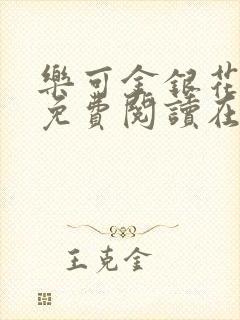 樂可金銀花
免費閱讀在
王克金